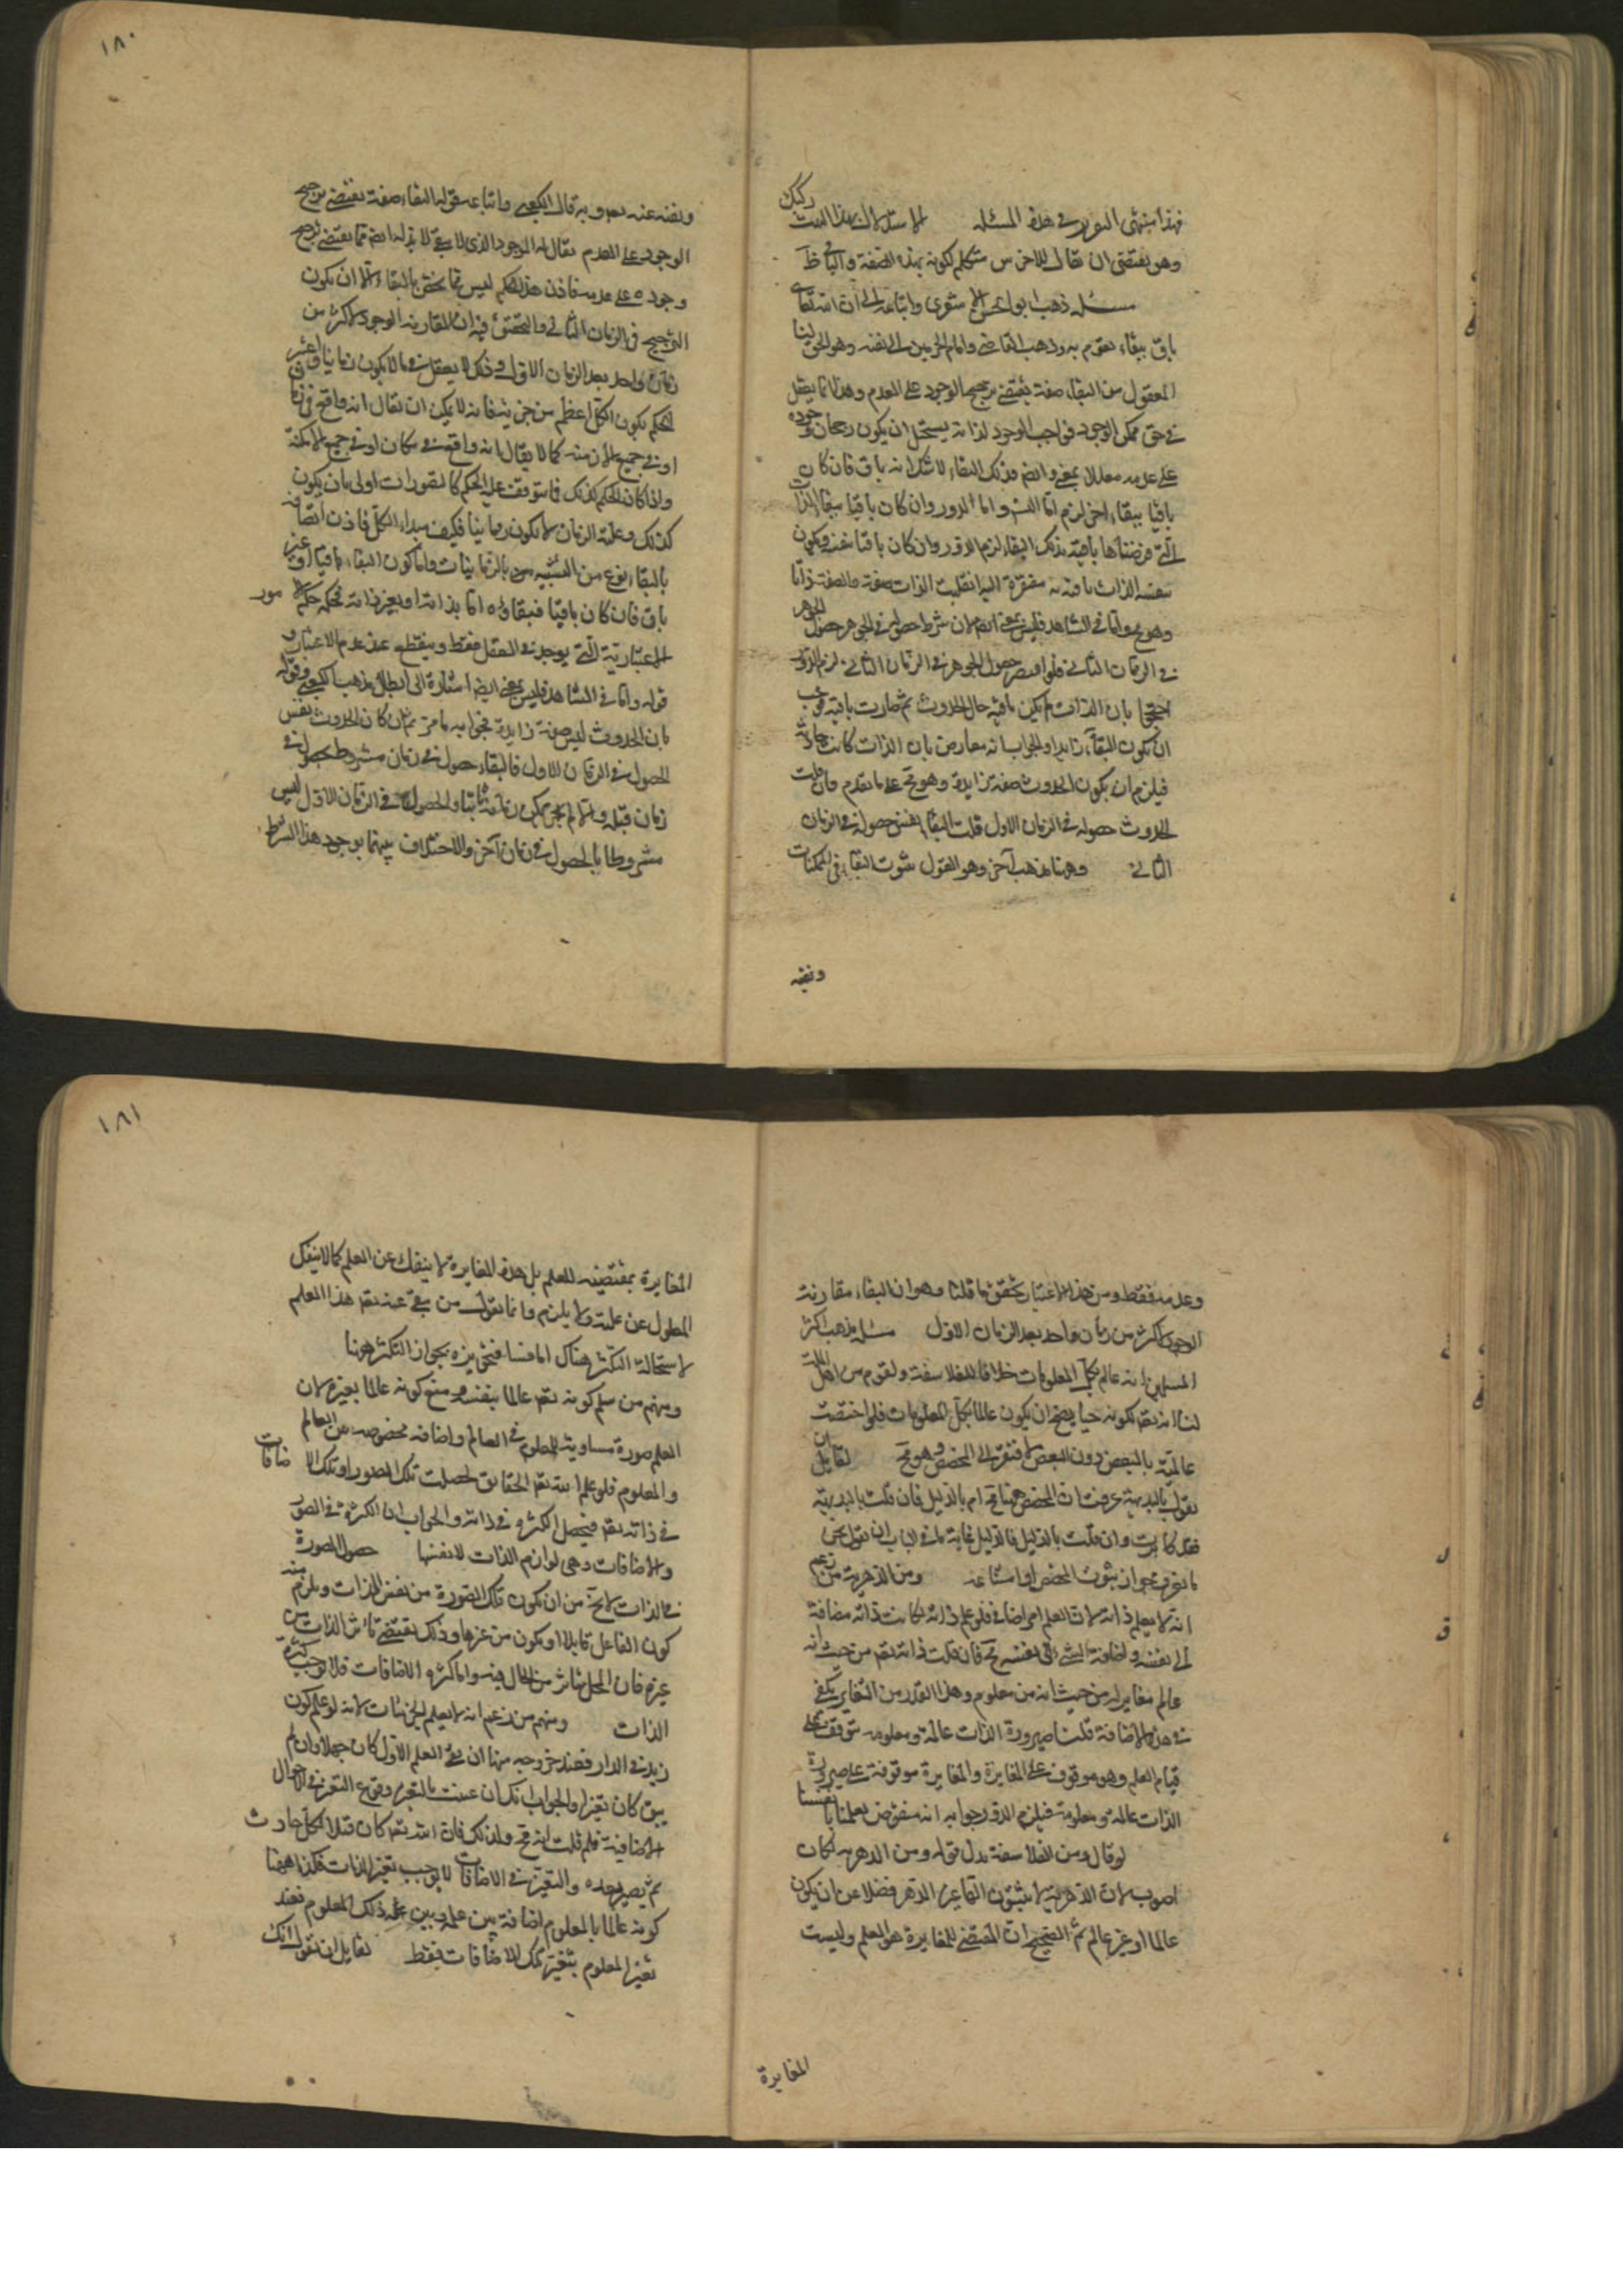 فهذا منتهى القول في هذه المسئلة الاستدلال بهذا البيت ركيك
وهو يقتضي ان يقال للاخرس متكلم لكونه بهذه الصفة والباقي ظ
مسئلة ذهب ابو الحسن الاشعري واتباعه الى ان الله تعالى
باق ببقاء يقوم به وذهب القاضي وامام الحرمين الى نفيه وهو الحق لنا
المعقول من البقاء صفة يقتضي ترجيح الوجود على العدم وهذا انما يعقل
في حق ممكن الوجود فواجب الوجود لذاته يستحيل ان يكون رجحان وجوده
على عدمه معللا بمعنى وايضا فذلك البقاء لا شك انه باق فان كان
باقيا ببقاء اخر لزم اما التس واما الدور وان كان باقيا ببقاء الذات
التي فرضناها باقية بذلك البقاء لزم الدور وان كان باقيا بنفسه ويكون
نفسه الذات باقية به مفتقرة اليه انقلبت الذات صفة والصفة ذاتا
وهو مح واما في الشاهد فليس بمعنى ايضا لان شرط حصوله في الجوهر حصول الجوهر
في الزمان الثاني فلو افتقر حصول الجوهر في الزمان الثاني لزم الدور
احتجوا بان الذات لم يكن باقية حال الحدوث ثم صارت باقية فوجب
ان يكون البقاء زايدا والجواب انه معارض بان الذات كانت حادثة
فيلزم ان يكون الحدوث صفة زايدة وهو مح على ما تقدم فان قلت
الحدوث حصوله في الزمان الاول قلت البقاء نفس حصوله في الزمان
الثاني وههنا مذهب آخر وهو القول بثبوت البقاء في الممكنات
ونفيه
١٨٠
ونفيه عنه تعالى وبه قال الكعبي واتباعه قوله البقاء صفة تقتضي ترجيح
الوجود على العدم يقال له الموجود الذي لا يبقى لا بد له ايضا مما يقتضي ترجيح
وجوده على عدمه فاذن هذا الحكم ليس مما يختص بالبقاء الا ان يكون
الترجيح في الزمان الثاني والتحقيق فيه ان المقارنه الوجود لاكثر من
زمان واحد بعد الزمان الاول وذلك لا يعقل فيما لا يكون زمانيا
الحكم بكون الكل اعظم من جزئيه فانه لا يمكن ان يقال انه واقع في زمان
او في جميع الازمنه كما لا يقال انه واقع في مكان او في جميع الامكنة
واذا كان الحكم كذلك فما يتوقف عليه الحكم كالتصورات اولى بان يكون
كذلك وعلة الزمان لا يكون زمانيا فكيف مبداء الكل فاذن اتصافه
بالبقاء نوع من التشبيه بالزمانيات واما كون البقاء باقيا او غير
باق فان كان باقيا فبقاؤه اما بذاته او بغير ذاته فحكمه حكم الامور
الاعتبارية التي يوجد في العقل فقط وينقطع عند عدم الاعتبار و
قوله واما في الشاهد فليس بمعنى ايضا اشارة الى ابطال مذهب الكعبي وقوله
بان الحدوث ليس صفة زايدة فجوابه ما مر ثم ان كان الحدوث نفس
الحصول في الزمان الاول فالبقاء حصول في زمان مشروط بحصوله في
زمان قبله والحصول في الزمان الاول ليس
مشروطا بالحصول في زمان آخر والاختلاف بينهما بوجود هذا الشرط
وعدمه فقط ومن هذا الاعتبار تحقق ما قلنا وهو ان البقاء مقارنة
الوجود لاكثر من زمان واحد بعد الزمان الاول مسئلة مذهب اكثر
المسلمين انه عالم بكل المعلومات خلافا للفلاسفة ولقوم من اهل الملة
لنا انه تعالى لكونه حيا يصح ان يكون عالما بكل المعلومات فلو اختصت
عالميته بالبعض دون البعض لافتقر الى المخصص وهو مح لقايل ان
يقول بالبديهة عرفت ان المخصص ههنا مح ام بالدليل فان قلت بالبديهة
فقد كابرت وان قلت بالدليل فالدليل غاية ما في الباب ان تقول نحن
ما نعرف جواز ثبوت المخصص او امتناعه ومن الدهرية من زعم
انه لا يعلم ذاته لان العلم امر اضافي فلو علم ذاته لكانت ذاته مضافة
الى نفسه واضافة الشئ الى نفسه مح فان قلت ذاته تعالى من حيث انه
عالم مغاير له من حيث انه معلوم وهذا القدر من التغاير يكفي
في هذه الاضافة قلنا صيرورة الذات عالمة ومعلومه يتوقف على
قيام العلم وهو موقوف على المغايرة والمغايرة موقوفة على صيرورة
الذات عالمة ومعلومة فيلزم الدور جوابه انه منقوض بعلمنا بانفسنا
لو قال ومن الفلاسفة بدل قوله ومن الدهرية لكان
اصوب لان الدهرية لا يثبتون الها غير الدهر فضلا عن ان يكون
عالما او غير عالم ثم الصحيح ان المقتضي للمغايرة هو العلم وليست
المغايرة
١٨١
المغايرة بمقتضيه للعلم بل هذه المغايرة لا ينفك عن العلم كما لا ينفك
المعلول عن علته ولا يلزم وانما يقول من نفى عنه تعالى هذا العلم
لاستحالة التكثر هناك اما فينا فيجوز لجواز التكثر هونا
ومنهم من سلم كونه تعالى عالما بنفسه ومنع كونه عالما بغيره لان
العلم صورة مساوية للمعلوم في العالم واضافه مخصوصه بين العالم
والمعلوم فلو علم الله تعالى الحقايق لحصلت تلك الصور او تلك الاضافات
في ذاته تعالى فيحصل الكثرة في ذاته والجواب ان الكثرة في الصور
والاضافات وهي لوازم الذات لا نفسها حصول الصورة
في الذات لا يخ من ان يكون تلك الصورة من نفس الذات ويلزم منه
كون الفاعل قابلا او يكون من غيرها وذلك يقتضي تاثر الذات من
غيره فان المحل متاثر من الحال فيه واما كثرة الاضافات فلا يوجب كثرة
الذات ومنهم من زعم انه لا يعلم الجزئيات لانه لو علم كون
زيد في الدار فعند خروجه منها ان بقي العلم الاول كان جهلا وان لم
يبق كان تغيرا والجواب انك ان عنيت بالتغير وقوع التغير في الاحوال
الاضافية فلم قلت انه مح ولذلك فان الله تعالى كان قبلا لكل حادث
ثم يصير بعده والتغير في الاضافات لا يوجب تغير الذات فكذا ههنا
كونه عالما بالمعلوم اضافة بين علمه وبين ذلك المعلوم فعند
تغير المعلوم يتغير تلك الاضافات فقط لقايل ان يقول انك